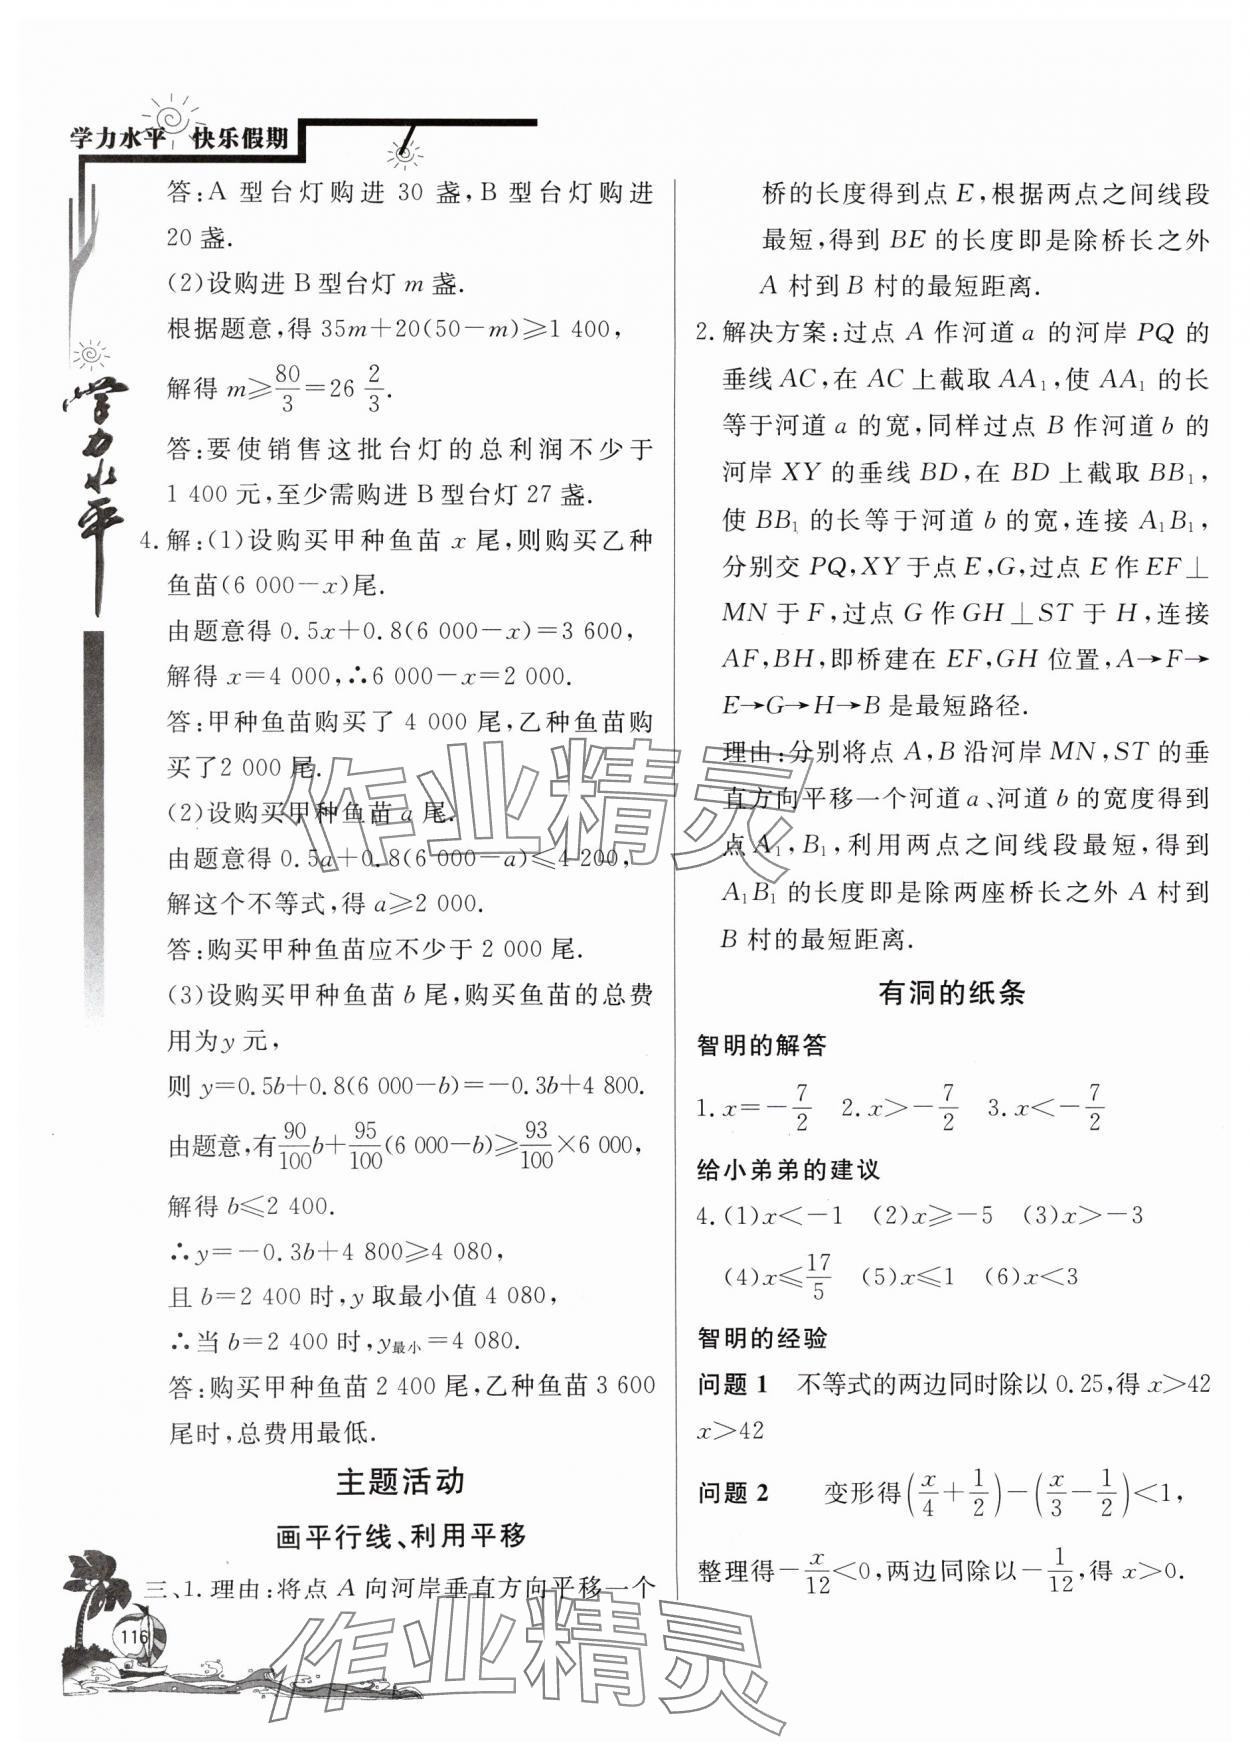 学力水平 快乐假期
答:A 型台灯购进 30 盏,B 型台灯购进
20 盏.
(2)设购进 B 型台灯 m 盏.
根据题意,得 35m+20(50-m)≥1 400,
解得 m≥80/3=26 2/3.
答:要使销售这批台灯的总利润不少于
1 400 元,至少需购进 B 型台灯 27 盏.
4.解:(1)设购买甲种鱼苗 x 尾,则购买乙种
鱼苗(6 000-x)尾.
由题意得 0.5x+0.8(6 000-x)=3 600,
解得 x=4 000,∴6 000-x=2 000.
答:甲种鱼苗购买了 4 000 尾,乙种鱼苗购
买了2 000 尾.
(2)设购买甲种鱼苗 a 尾.
由题意得 0.5a+0.8(6 000-a)≤4 200,
解这个不等式,得 a≥2 000.
答:购买甲种鱼苗应不少于 2 000 尾.
(3)设购买甲种鱼苗 b 尾,购买鱼苗的总费
用为y 元,
则 y=0.5b+0.8(6 000-b)=-0.3b+4 800.
由题意,有90/100b+95/100(6 000-b)≥93/100×6 000,
解得 b≤2 400.
∴y=-0.3b+4 800≥4 080,
且 b=2 400 时,y 取最小值 4 080,
∴当 b=2 400 时,y最小=4 080.
答:购买甲种鱼苗 2 400 尾,乙种鱼苗 3 600
尾时,总费用最低.
主题活动
画平行线、利用平移
三、1.理由:将点 A 向河岸垂直方向平移一个
桥的长度得到点 E,根据两点之间线段
最短,得到 BE 的长度即是除桥长之外
A 村到 B 村的最短距离.
2.解决方案:过点 A 作河道 a 的河岸 PQ 的
垂线 AC,在 AC 上截取 AA₁,使 AA₁ 的长
等于河道 a 的宽,同样过点 B 作河道 b 的
河岸 XY 的垂线 BD,在 BD 上截取 BB₁,
使 BB₁ 的长等于河道 b 的宽,连接 A₁B₁,
分别交 PQ,XY 于点 E,G,过点 E 作 EF⊥
MN 于 F,过点 G 作 GH⊥ST 于 H,连接
AF,BH,即桥建在 EF,GH 位置,A→F→
E→G→H→B 是最短路径.
理由:分别将点 A,B 沿河岸 MN,ST 的垂
直方向平移一个河道 a、河道 b 的宽度得到
点 A₁,B₁,利用两点之间线段最短,得到
A₁B₁ 的长度即是除两座桥长之外 A 村到
B 村的最短距离.
有洞的纸条
智明的解答
1.x=-7/2 2.x>-7/2 3.x<-7/2
给小弟弟的建议
4.(1)x<-1 (2)x≥-5 (3)x>-3
(4)x≤17/5 (5)x≤1 (6)x<3
智明的经验
问题 1 不等式的两边同时除以 0.25,得 x>42
x>42
问题 2 变形得(x/4+1/2)-(x/3-1/2)<1,
整理得-x/12<0,两边同除以-1/12,得 x>0.
学力水平
116
作业精灵
作业精灵